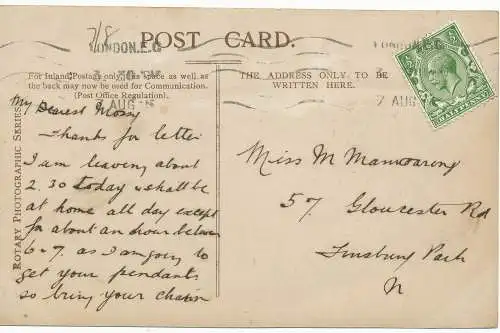 7/8
LONDON.E.C
POST CARD.
LONDON.E.C
For Inland Postage only, this space as well as
the back may now be used for Communication.
(Post Office Regulation).
THE ADDRESS ONLY TO BE
WRITTEN HERE.
AUG
7 AUG
HALFPENNY
ROTARY PHOTOGRAPHIC SERIES
My Dearest Mossy
Thanks for letter
I am leaving about
2.30 today & shall be
at home all day except
for about an hour between
6-7. as I am going to
get your pendants
so bring your chain
Miss M Mainwaring
57 Gloucester Rd
Finsbury Park
N